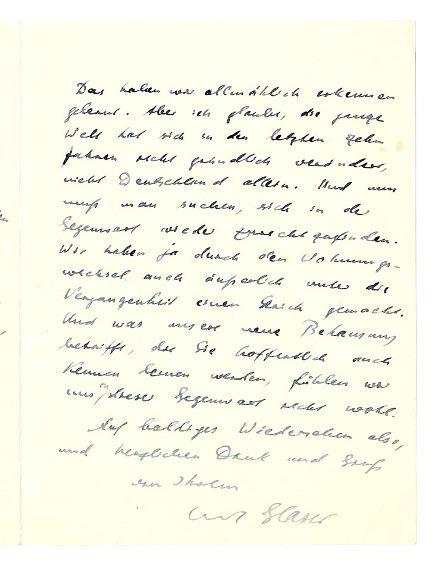 Das haben wir allmählich erkennen
gelernt. Aber ich glaube, die ganze
Welt hat sich in den letzten zehn
Jahren recht gründlich verändert,
nicht Deutschland allein. Und nun
muß man suchen, sich in der
Gegenwart wieder zurechtzufinden.
Wir haben ja durch den Wohnungs-
wechsel auch äußerlich unter die
Vergangenheit einen Strich gemacht.
Und was unsere neue Behausung
betrifft, die Sie hoffentlich auch
kennen lernen werden, fühlen wir
uns in dieser Gegenwart recht wohl.
Auf baldiges Wiedersehen also,
und herzlichen Dank und Gruß
von Ihrem
Curt Glaser